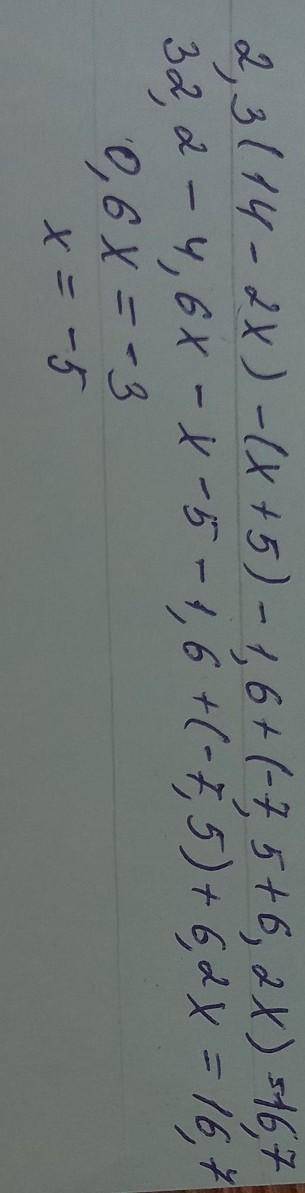 2,3(14-2x)-(x+5)-1,6+(-7,5+6,2x)=16,7
32,2-4,6x-x-5-1,6+(-7,5)+6,2x=16,7
0,6x=-3
x=-5